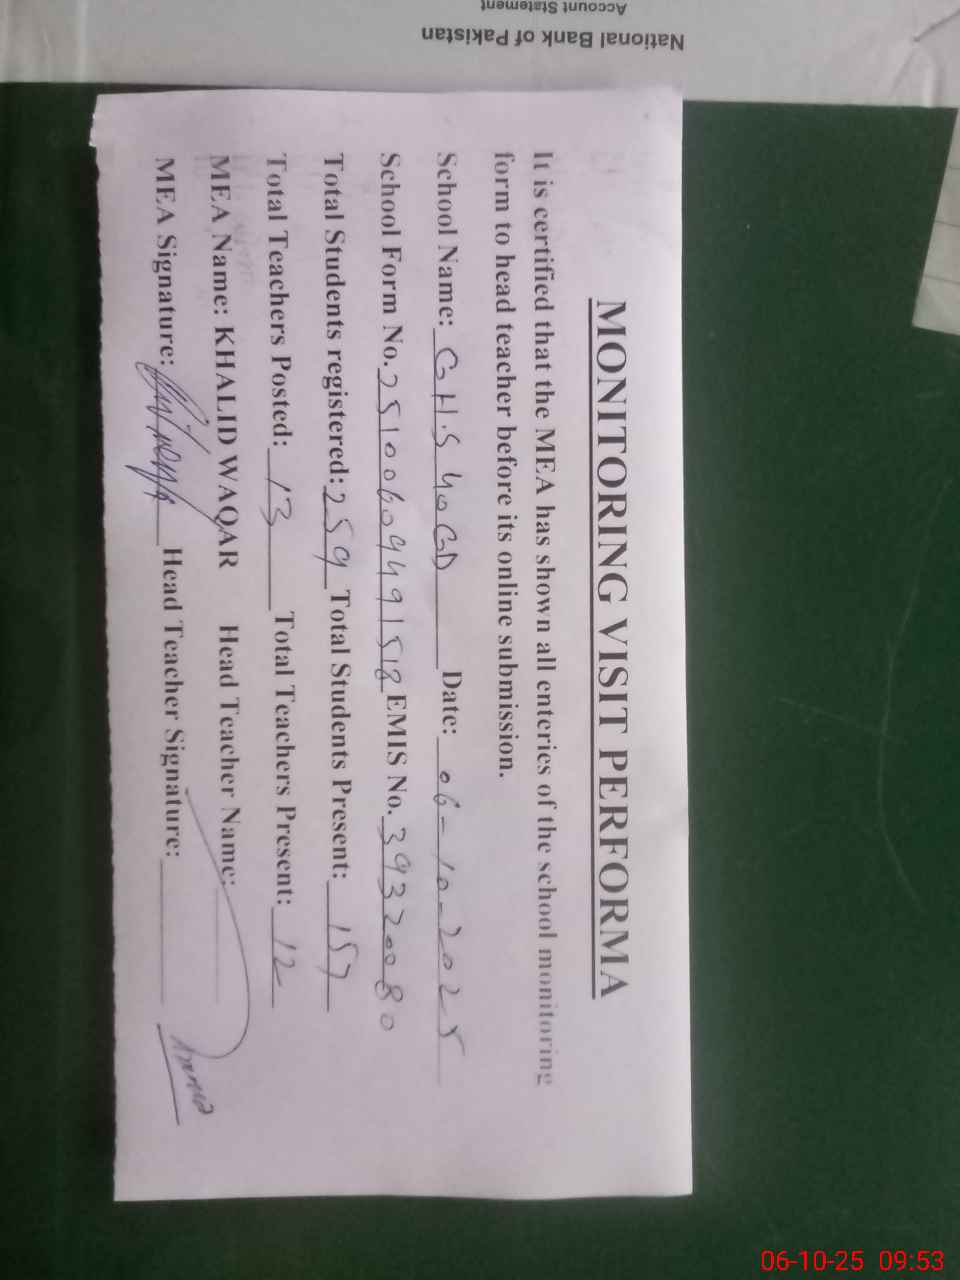 National Bank of Pakistan
Account Statement
MONITORING VISIT PERFORMA
It is certified that the MEA has shown all enteries of the school monitoring
form to head teacher before its online submission.
School Name: G H.S 40 GD Date: 06-10-2025
School Form No. 251006094491518 EMIS No. 39320080
Total Students registered: 259 Total Students Present: 157
Total Teachers Posted: 13 Total Teachers Present: 12
MEA Name: KHALID WAQAR Head Teacher Name:
MEA Signature: Head Teacher Signature:
06-10-25 09:53